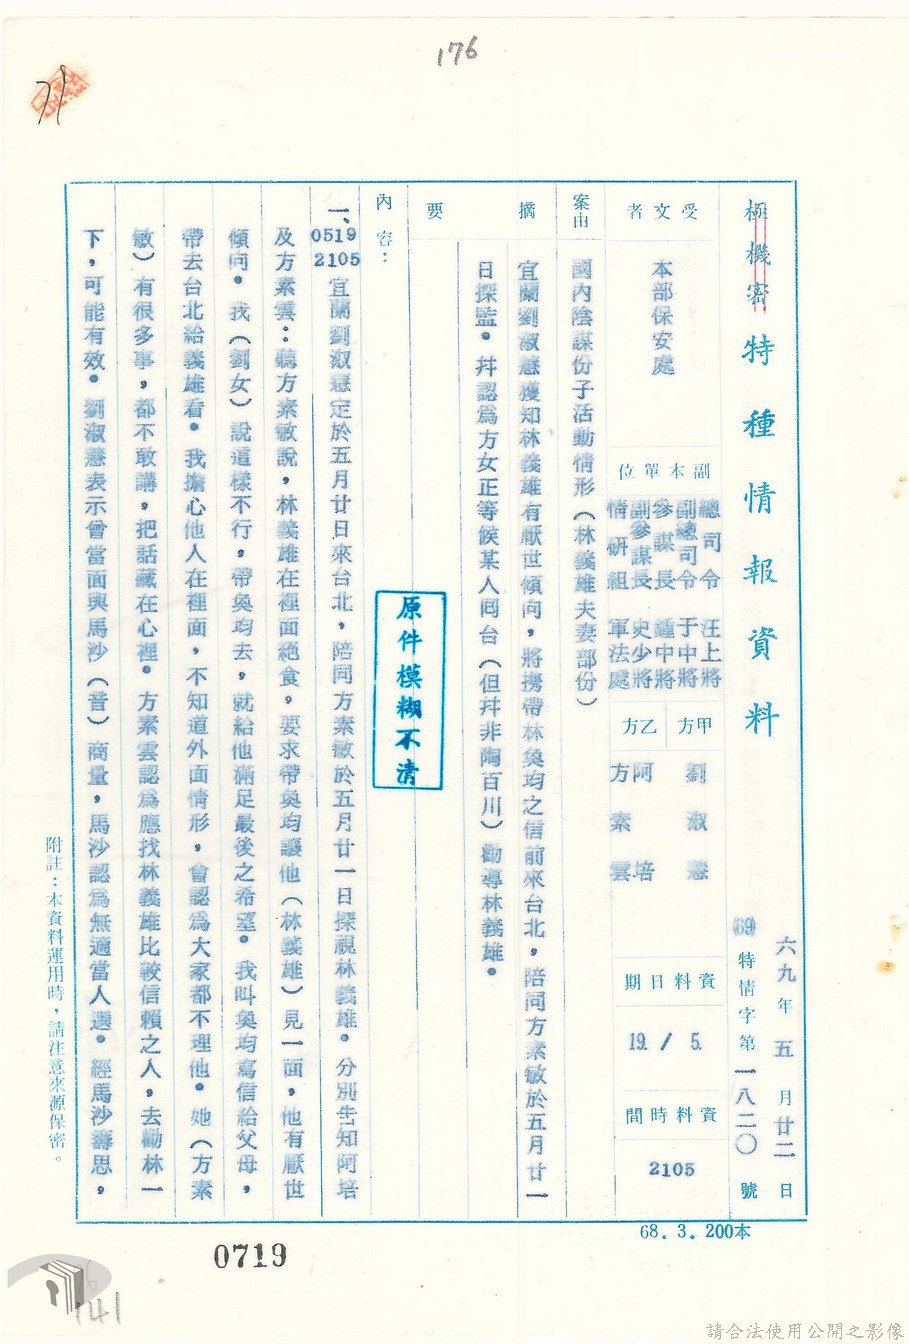 176
極機密
特種情報資料
六九年五月廿二日
69特情字第一八二〇號
受文者
本部保安處
副本單位
總司令 汪上將
副總司令 于中將
參謀長 鍾中將
副參謀長 史少將
情研組 軍法處
甲方
劉淑慧
乙方
阿培
方素雲
資料日期
5. / 19.
資料時間
2105
案由
國內陰謀份子活動情形(林義雄夫妻部份)
摘要
宜蘭劉淑慧獲知林義雄有厭世傾向,將携帶林奐均之信前來台北,陪同方素敏於五月廿一
日探監。幷認為方女正等候某人囘台(但幷非陶百川)勸導林義雄。
內容:
原件模糊不清
一、0519 2105 宜蘭劉淑慧定於五月廿日來台北,陪同方素敏於五月廿一日探視林義雄。分別告知阿培
及方素雲:聽方素敏說,林義雄在裡面絕食,要求帶奐均讓他(林義雄)見一面,他有厭世
傾向。我(劉女)說這樣不行,帶奐均去,就給他滿足最後之希望。我叫奐均寫信給父母,
帶去台北給義雄看。我擔心他人在裡面,不知道外面情形,會認為大家都不理他。她(方素
敏)有很多事,都不敢講,把話藏在心裡。方素雲認為應找林義雄比較信賴之人,去勸林一
下,可能有效。劉淑慧表示曾當面與馬沙(音)商量,馬沙認為無適當人選。經馬沙籌思,
附註:本資料運用時,請注意來源保密。
68.3.200本
0719
141
請合法使用公開之影像